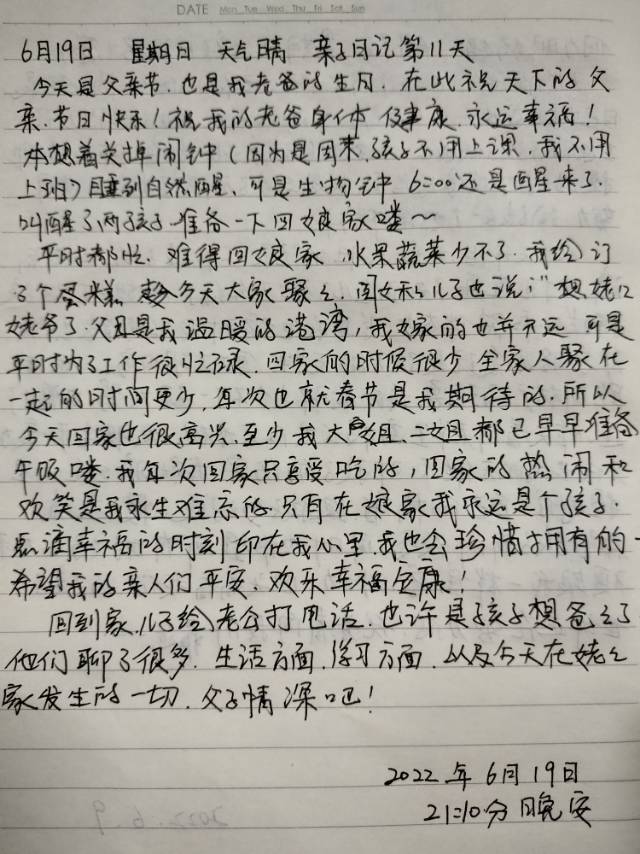 DATE Mon Tue Wed Thu Fri Sat Sun
6月19日 星期日 天气晴 亲子日记第11天
今天是父亲节.也是我老爸的生日.在此祝天下的父
亲.节日快乐!祝我的老爸身体健康.永远幸福!
本想着关掉闹钟(因为是周末.孩子不用上课.我不用
上班)睡到自然醒.可是生物钟6:00还是醒来了.
叫醒了两孩子准备一下回娘家喽~
平时都忙.难得回娘家,水果蔬菜少不了.我给订
了个蛋糕.趁今天大家聚聚.闺女和儿子也说:"想姥姥
姥爷了.父母是我温暖的港湾,我嫁的也并不远.可是
平时为了工作很忙碌.回家的时候很少 全家人聚在
一起的时间更少.每次也就春节是我期待的.所以
今天回家也很高兴.至少我大姐.二姐都已早早准备
午饭喽.我每次回家只享受吃的,回家的热闹和
欢笑是我永生难忘的.只有在娘家我永远是个孩子.
点滴幸福的时刻印在我心里.我也会珍惜拥有的.
希望我的亲人们平安.欢乐幸福健康!
回到家.儿子给老公打电话.也许是孩子想爸爸了
他们聊了很多.生活方面.学习方面.以及今天在姥姥
家发生的一切.父子情深吧!
2022年6月19日
21:10分晚安